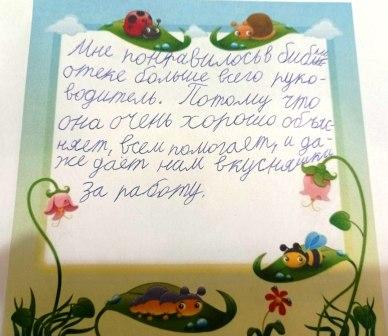 Мне понравилось в библи-
отеке больше всего руко-
водитель. Потому что
она очень хорошо объяс-
няет, всем помогает, и да-
же даёт нам вкусняшки
за работу.